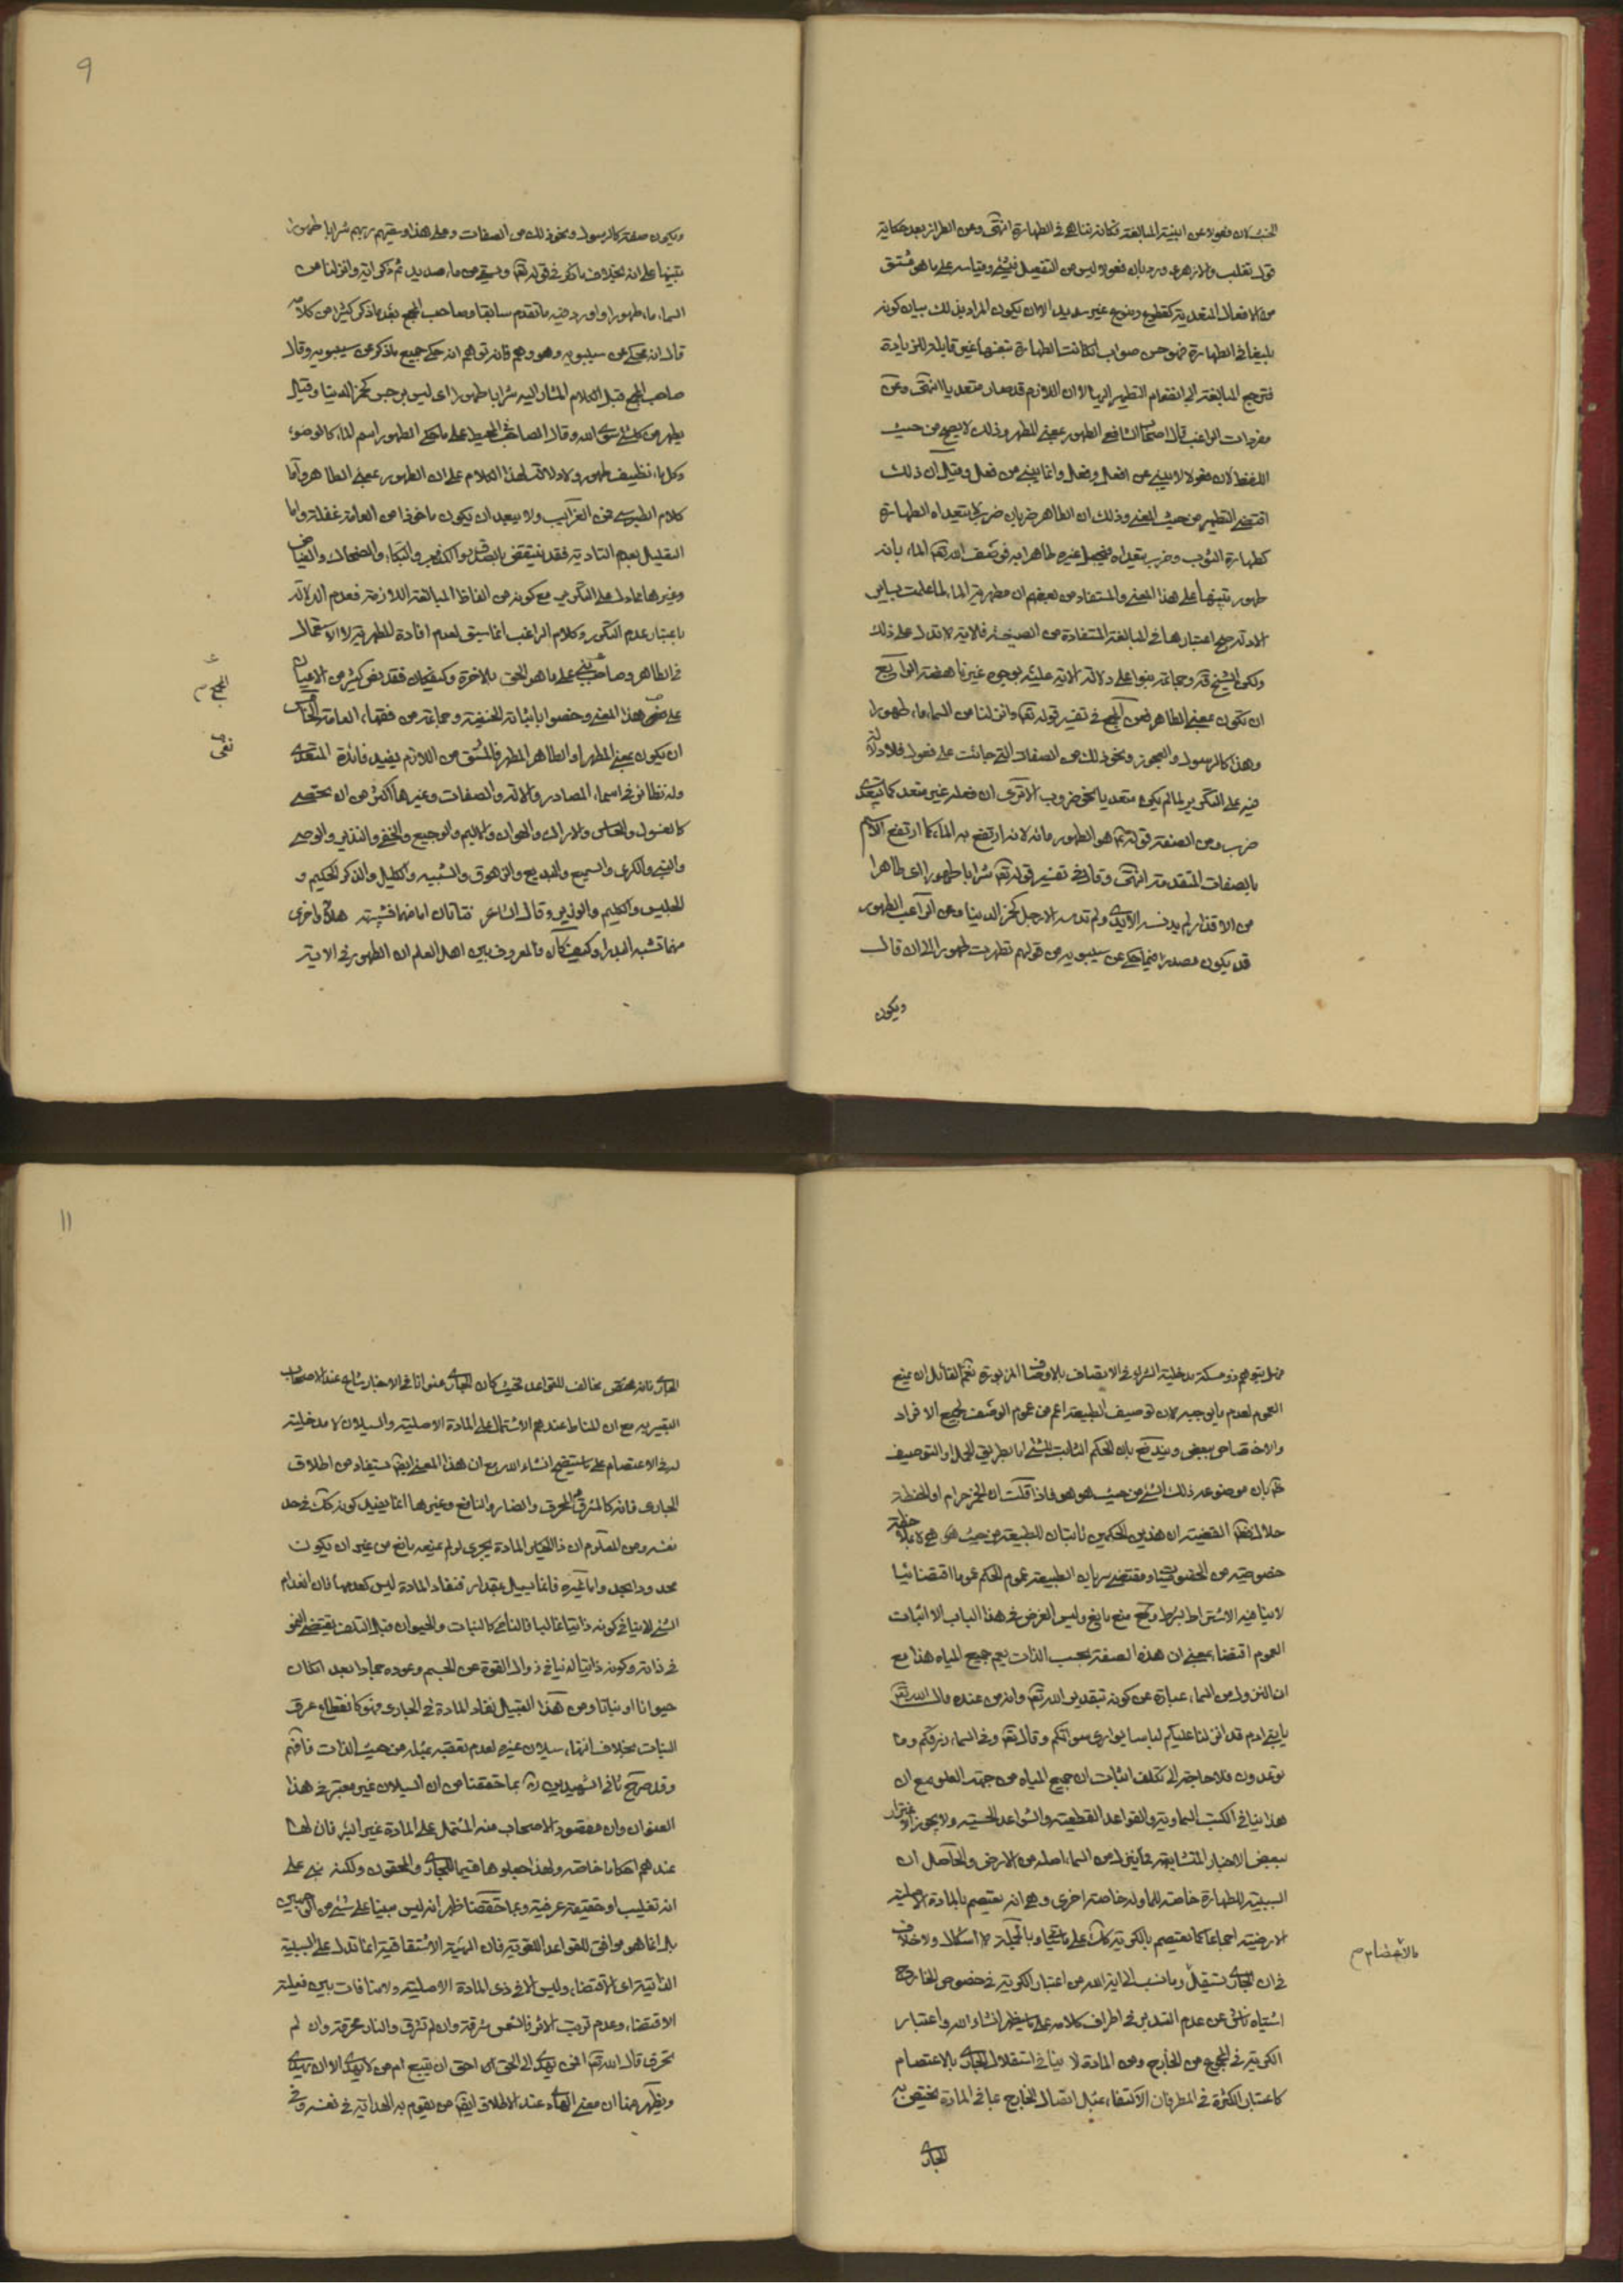 الخبث لان فعولا من ابنية المبالغة فكانه تناهى في الطهارة انتهى وعن الطراز بعد حكاية
قول تغلب والازهرى ورد بان فعولا ليس من التفعيل في شئ وقياسه على ما هو مشتق
من الافعال المتعدية كقطوع ومنوع غير سديد الا ان يكون المراد بذلك بيان كونه
بليغا في الطهارة فهو حسن صواب اذ كانت الطهارة بنفسها غير قابلة للزيادة
فترجع المبالغة الى انضمام التطهير اليها لا ان اللازم قد صار متعديا انتهى وعن
مفردات الراغب قال اصحاب الشافعى الطهور بمعنى المطهر وذلك لا يصح من حيث
اللفظ لان فعولا لا يبنى من افعل وفعل وانما يبنى من فعل وقيل ان ذلك
اقتضى التطهير من حيث المعنى وذلك ان الطاهر ضربان ضرب لا يتعداه الطهارة
كطهارة الثوب وضرب يتعداه فيجعل غيره طاهرا به فوصف الله تعالى الماء بانه
طهور تنبيها على هذا المعنى والمستفاد من بعضهم ان مطهرية الماء لما علمت بساير
الادلة رجح اعتبارها في المبالغة المستفادة من الصيغة فالاية لا تدل على ذلك
ولكن الشيخ قده وجماعة بنوا على دلالة الاية عليه بوجوه غير ناهضة الرابع
ان تكون بمعنى الطاهر فعن المجمع في تفسير قوله تعالى وانزلنا من السماء ماء طهورا
وهذا كالرسول والعجوز ونحو ذلك من الصفات التي جائت على فعول فلا دلالة
فيه على التكرير لما لم يكن متعديا نحو ضروب الا ترى ان فعله غير متعد كما يتعدى
ضرب ومن الصفة قوله تعالى هو الطهور مائه لانه ارتفع به الماء كما ارتفع الاسم
بالصفات المتقدمة انتهى وقال في تفسير قوله تعالى شرابا طهورا اى طاهرا
من الاقذار لم يدنسه الايدى ولم تدسه الارجل كخمر الدنيا وعن الراغب الطهور
قد يكون مصدرا فيما حكى عن سيبويه من قولهم تطهرت طهورا الى ان قال
ويكون
9
ويكون صفة كالرسول ونحو ذلك من الصفات وعلى هذا وسقيهم ربهم شرابا طهورا
تنبيها على انه بخلاف ما ذكر في قوله تعالى ويسقى من ماء صديد ثم ذكر اية وانزلنا من
السماء ماء طهورا واورد فيه ما تقدم سابقا وصاحب المجمع بعد ما ذكر كثيرا من كلامه
قال انه محكى عن سيبويه وهو وهم فانه توهم انه حكى جميع ما ذكر عن سيبويه وقال
صاحب المجمع قبل الكلام المشار اليه شرابا طهورا اى ليس برجس كخمر الدنيا وقيل
يطهر من كل شئ سوى الله وقال الصاحب في المحيط على ما حكى الطهور اسم للماء كالوضوء
وكل ماء نظيف طهور ولا دلالة لهذا الكلام على ان الطهور بمعنى الطاهر واما
كلام الطبرسى فمن الغرايب ولا يبعد ان يكون ماخوذا من العامة غفلة واما
التعليل بعدم التادية فقد ينتقض بالصدوق والكذوب والبكاء والضحاك والفياض
وغيرها مما دل على التكرير مع كونه من الفاظ المبالغة اللازمة فعدم الدلالة
باعتبار عدم التكرر وكلام الراغب انما سيق لعدم افادة المطهرية لا الاستعمال
في الطاهر وصاحب بنى على ما هو الحق بالاخرة وكيف كان فقد نص كثير من الاعيان
المجمع م
على هذا المعنى وخصوا باثباته الحنفية وجماعة من فقهاء العامة الخامس
نفى
ان يكون بمعنى المطهر او الطاهر المطهر فالمشتق من اللازم يفيد فائدة المتعدى
وله نظائر في اسماء المصادر والالة والصفات وغيرها اكثر من ان يحتصى
كالغسول والادراك والهوان والاليم والوجيع والخفى والنذير والوصى
والنبى والكرى والسميع والبديع والزهوق والشبيه والكليل والذكر الحكيم و
الجليس والكليم والوزير وقال الشاعر فتاتان اما منهما فشبيهة هلالا واخرى
منهما تشبه البدرا وكيف كان فالمعروف بين اهل العلم ان الطهور في الاية
فهل يتوهم ذو مسكة مدخلية الشراب في الاتصاف بالاوصاف المزبورة نعم لقائل ان يمنع
العموم لعدم ما يوجبه لان توصيف الطبيعة اعم من عموم الوصف لجميع الافراد
والاختصاص ببعض ويندفع بان الحكم الثابت للشئ اما بطريق الحمل او التوصيف
بان موضوعه ذلك الشئ من حيث هو هو فاذا قلت ان الخمر حرام او الحنطة
حلال القضية ان هذين الحكمين ثابتان للطبيعة من حيث هى هى بلا ملاحظة
خصوصية من الخصوصيات ومقتضى سريان الطبيعة عموم الحكم عموما اقتضائيا
لا ينافيه الاشتراط بشرط ومنع مانع وليس الغرض في هذا الباب الا اثبات
العموم اقتضاء بمعنى ان هذه الصفة بحسب الذات يعم جميع المياه هذا مع
ان النزول من السماء عبارة عن كونه بتقدير الله تعالى وانه من عنده قال الله تعالى
يا بنى ادم قد انزلنا عليكم لباسا يوارى سواتكم وقال تعالى وفي السماء رزقكم وما
توعدون فلا حاجة الى تكلف اثبات ان جميع المياه من جهة العلو مع ان
هذا ينافي الكتب السماوية والقواعد القطعية والشواعد الحسية ولا يجوز الاغترار
ببعض الاخبار المتشابهة فما ينزل من السماء اصله من الارض والحاصل ان
السببية للطهارة خاصة للماء وله خاصة اخرى وهى انه يعتصم بالمادة الاصلية
الارضية اجماعا كما يعتصم بالكرية كذلك على وبالجملة لا اشكال ولا خلاف
في ان الجارى يستقل وما نسب الى اية الله من اعتبار الكرية في خصوص الخارج
بالاعتصام م
اشتباه ناش عن عدم التدبر في اطراف كلامه على ما يظهر انشاء الله واعتبار
الكرية في المجموع من الخارج ومن المادة لا ينافي استقلال الجارى بالاعتصام
كاعتبار الكثرة في المطر فان الاكتفاء بمثل اتصال الخارج بما في المادة يختص به
الجارى
11
الجارى فانه مختص مخالف للقواعد بحيث كان الجارى عنوانا في الاخبار شاع عند الاصحاب
التعبير به مع ان المناط عندهم الاشتمال على المادة الاصلية والسيلان لا مدخلية
له في الاعتصام على ما يتضح انشاء الله مع ان هذا المعنى ايضا يستفاد من اطلاق
الجارى فانه كالمشرق والمحرق والضار والنافع وغيرها انما يفيد كونه كذلك في حد
نفسه ومن المعلوم ان المادة يجرى لو لم يمنعه مانع من غير ان يكون
محدودا بحد واما غيره فانما يسيل بمقدار فنفاد المادة ليس كعدمها فان انعدام
الشئ لا ينافي كونه ذاتيا غالبا فالنامى كالنبات والحيوان قبل التلف يقتضى النمو
في ذاته وكونه ذاتيا له لا ينافي زوال القوة عن الجسم وعوده جمادا بعد ان كان
حيوانا او نباتا ومن هذا القبيل نفاد المادة في الجارى فهو كانقطاع عرق
النبات بخلاف انتهاء سيلان غيره لعدم تعقبه بمثله من حيث الذات فافهم
وقد صرح ثانى الشهيدين ره بما حققنا من ان السيلان غير معتبر في هذا
العنوان وان مقصود الاصحاب منه المشتمل على المادة غير البئر فان لها
عندهم احكاما خاصة ولهذا جعلوها قسيما للجارى والمحقون ولكنه بنى على
انه تغليب او حقيقة عرفية وبما حققنا ظهر انه ليس مبنيا على شئ من الوجهين
بل انما هو موافق للقواعد اللغوية فان الهيئة الاشتقاقية انما تدل على السببية
الذاتية اى الاقتضاء وليس الا في ذى المادة الاصلية ولا منافات بين فعلية
الاقتضاء وعدم ترتب الاثر فالشمس مشرقة وان لم تشرق والنار محرقة وان لم
تحرق قال الله تعالى افمن يهدى الى الحق احق ان يتبع ام من لا يهدى الا ان يهدى
ويظهر هنا ان معنى الهادى عند الاطلاق ايضا من يقوم به الهداية في نفسه وفي